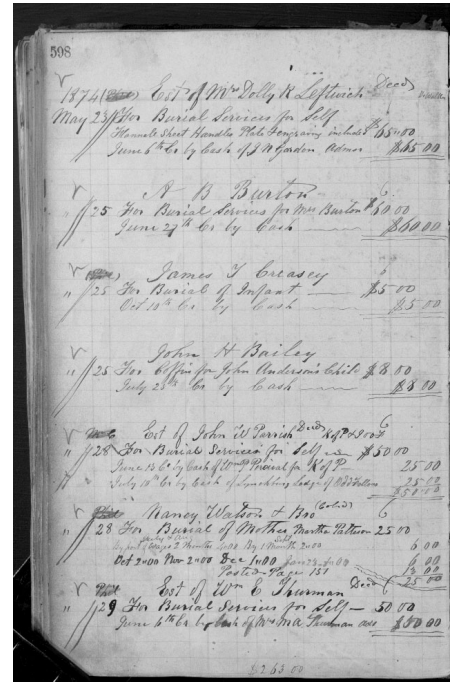 598
1874 Est of Mrs Dolly R Leftwich Decd
May 23 For Burial Services for Self
Sheet Handles Plate & engraving included $65.00
June 6th Cr by Cash of J N Gordon Admor $65.00
A B Burton
" 25 For Burial Services for Mrs Burton $60.00
June 27th Cr by Cash $60.00
James T Creasey
" 25 For Burial of Infant $5.00
Oct 10th Cr by Cash $5.00
John H Bailey
" 25 For Coffin for John Anderson's Child $8.00
July 23d Cr by Cash $8.00
Est of John W Parrish (Decd) K of P & I O O F
" 28 For Burial Services for Self $50.00
June 13 Cr by Cash of Wm P Percival for K of P 25.00
July 18th Cr by Cash of Lynchburg Lodge of Odd Fellows 25.00
$50.00
Nancy Watson & Bro (Cold)
" 28 For Burial of Mother Martha Patteson 25.00
By part of Wages 2 Months 4.00 By 1 Month 2.00 6 00
Oct 2.00 Nov 2.00 Dec 1.00 6 00
Posted Page 151 13 00
25 00
Est of Wm E Thurman Decd
" 29 For Burial Services for Self 50.00
June 6th Cr by Cash of Mrs M A Thurman $50.00
$263.00